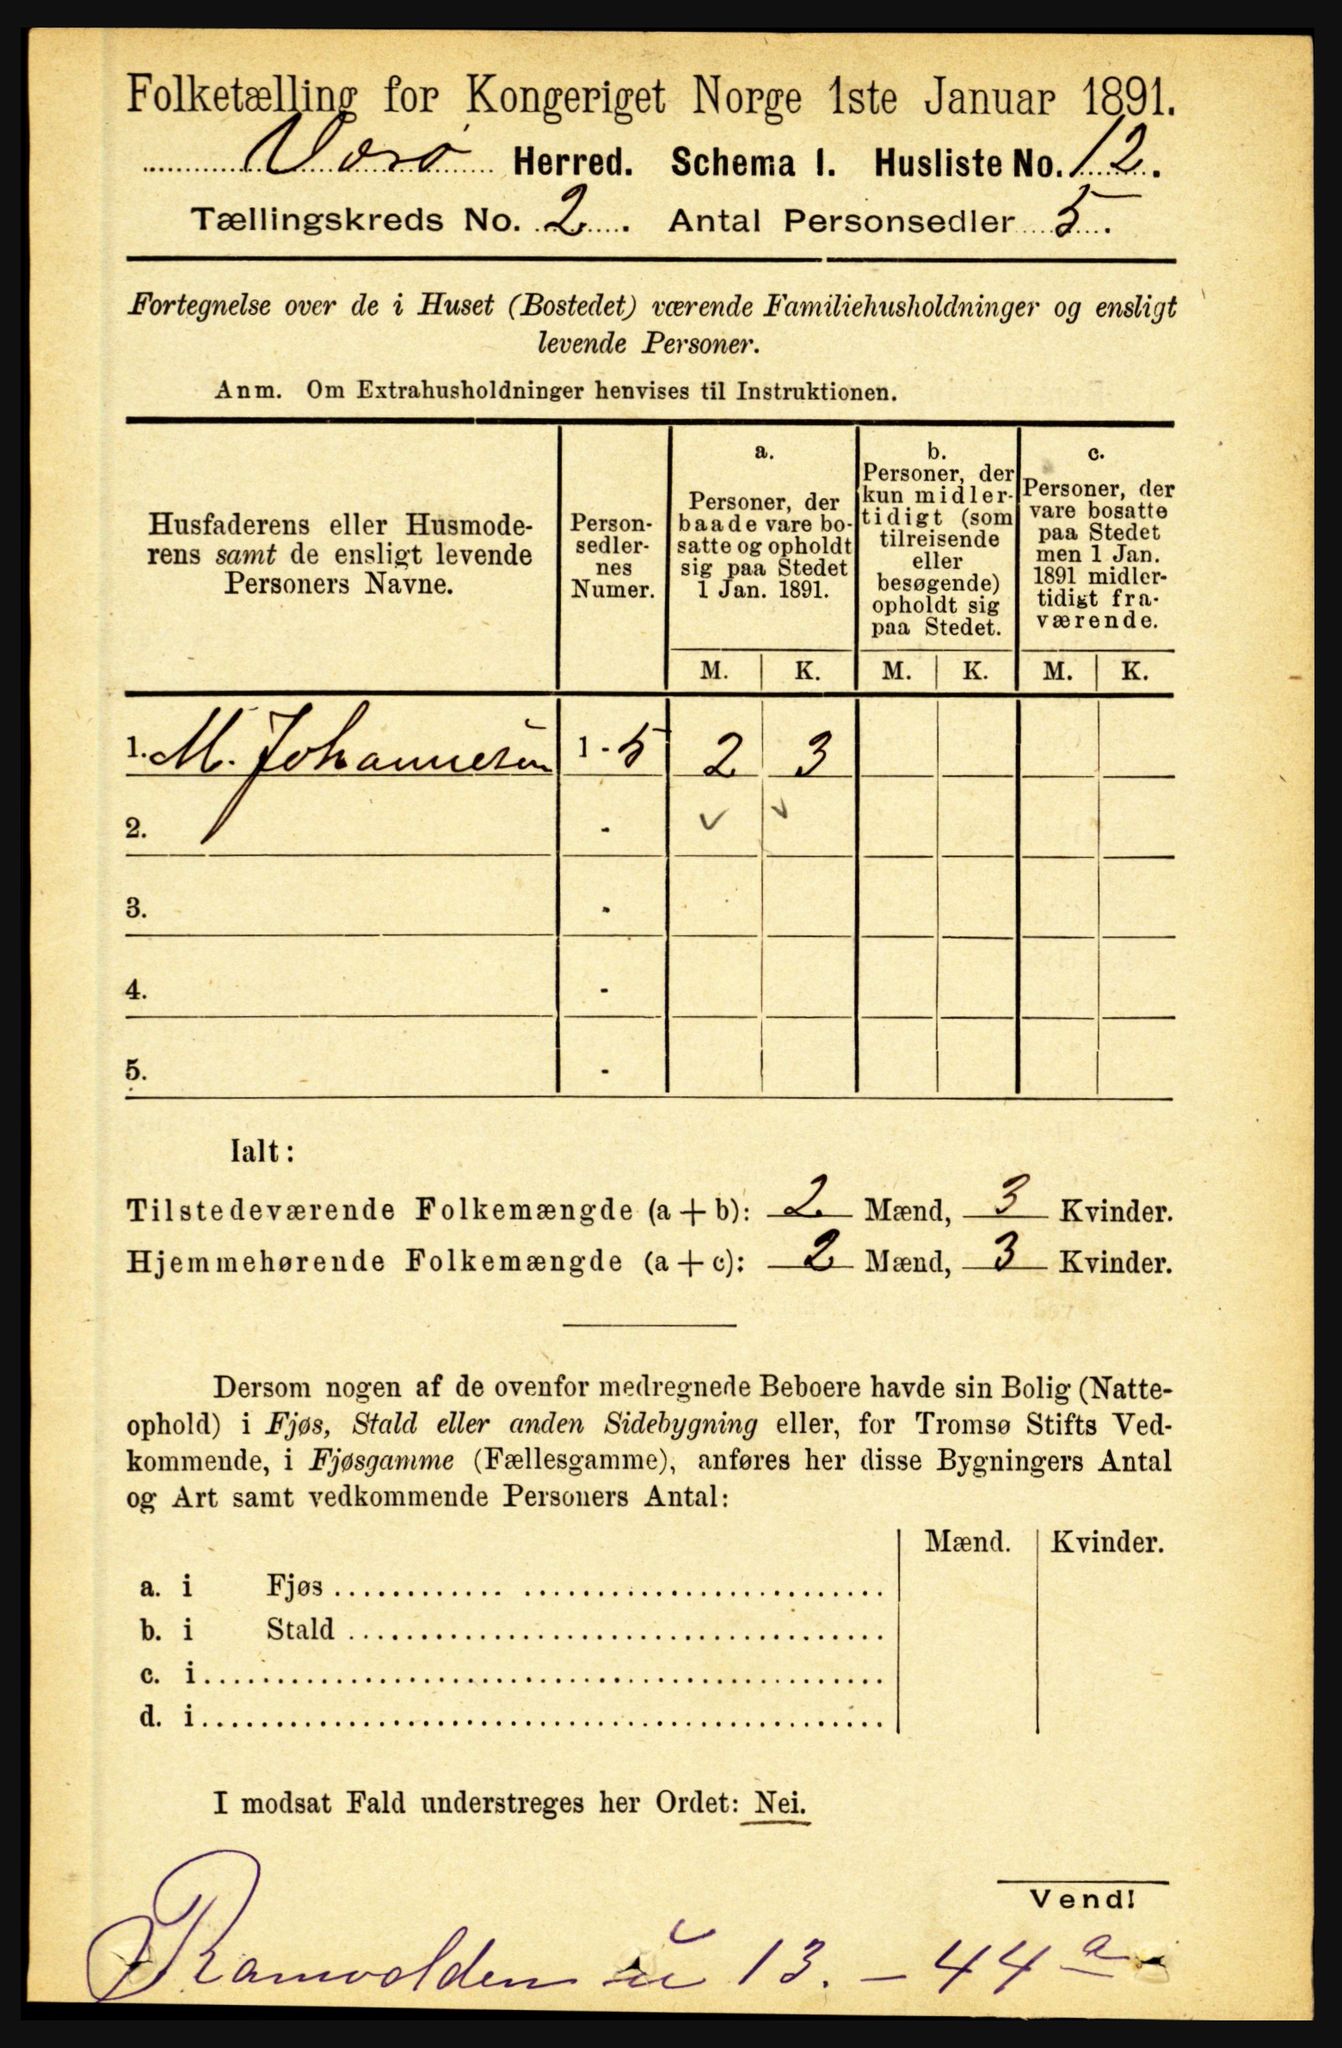 Folketælling for Kongeriget Norge 1ste Januar 1891.
Værø Herred. Schema I. Husliste No. 12.
Tællingskreds No. 2. Antal Personsedler 5.
Fortegnelse over de i Huset (Bostedet) værende Familiehusholdninger og ensligt
levende Personer.
Anm. Om Extrahusholdninger henvises til Instruktionen.
Husfaderens eller Husmode-
rens samt de ensligt levende
Personers Navne.
Person-
sedler-
nes
Numer.
a.
Personer, der
baade vare bo-
satte og opholdt
sig paa Stedet
1 Jan. 1891.
b.
Personer, der
kun midler-
tidigt (som
tilreisende
eller
besøgende)
opholdt sig
paa Stedet.
c.
Personer, der
vare bosatte
paa Stedet
men 1 Jan.
1891 midler-
tidigt fra-
værende.
M. K. M. K. M. K.
1. M. Johannesen 1 - 5 2 3
2. -
3. -
4. -
5. -
Ialt:
Tilstedeværende Folkemængde (a + b): 2 Mænd, 3 Kvinder.
Hjemmehørende Folkemængde (a + c): 2 Mænd, 3 Kvinder.
Dersom nogen af de ovenfor medregnede Beboere havde sin Bolig (Natte-
ophold) i Fjøs, Stald eller anden Sidebygning eller, for Tromsø Stifts Ved-
kommende, i Fjøsgamme (Fællesgamme), anføres her disse Bygningers Antal
og Art samt vedkommende Personers Antal:
Mænd. Kvinder.
a. i Fjøs
b. i Stald
c. i
d. i
I modsat Fald understreges her Ordet: Nei.
Vend!
13. - 44 a